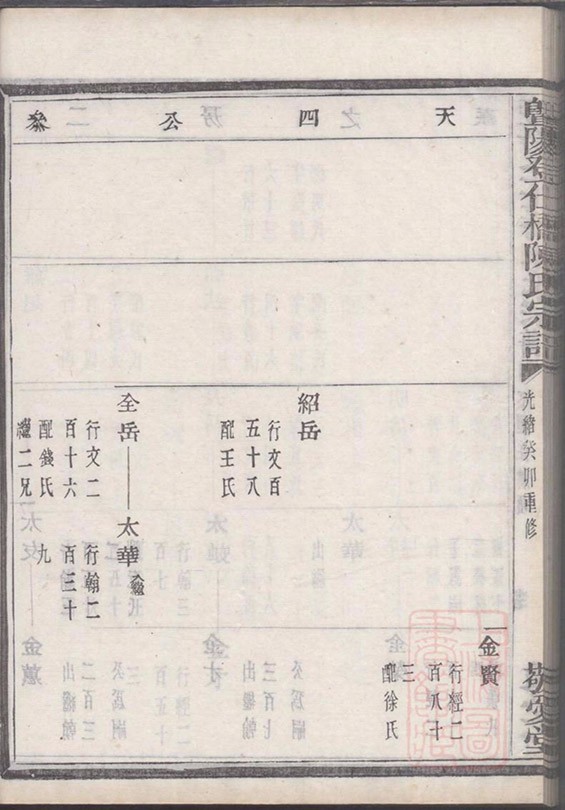 暨陽孝仁橋陳氏宗譜
光緒癸卯重修
敬愛堂
天四公叅
金賢
行經二
百八十
三
配徐氏
紹岳
行文百
五十八
配王氏
全岳
行文二
百十六
配錢氏
繼二兄
太華
入繼
行翰二
百三十
九